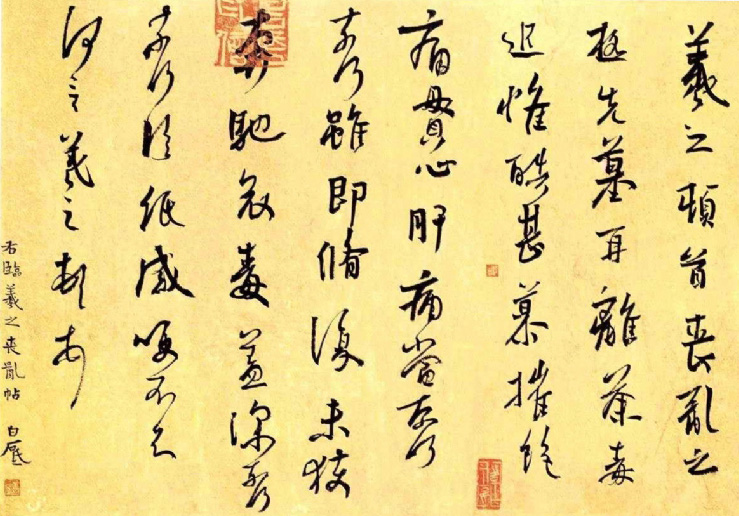 羲之頓首喪亂之
極先墓再離荼毒
追惟酷甚慕摧絕
痛貫心肝痛當奈何
奈何雖即脩復未獲
奔馳哀毒益深奈何
奈何臨紙感哽不知
何言羲之頓首頓首
右臨羲之喪亂帖 白